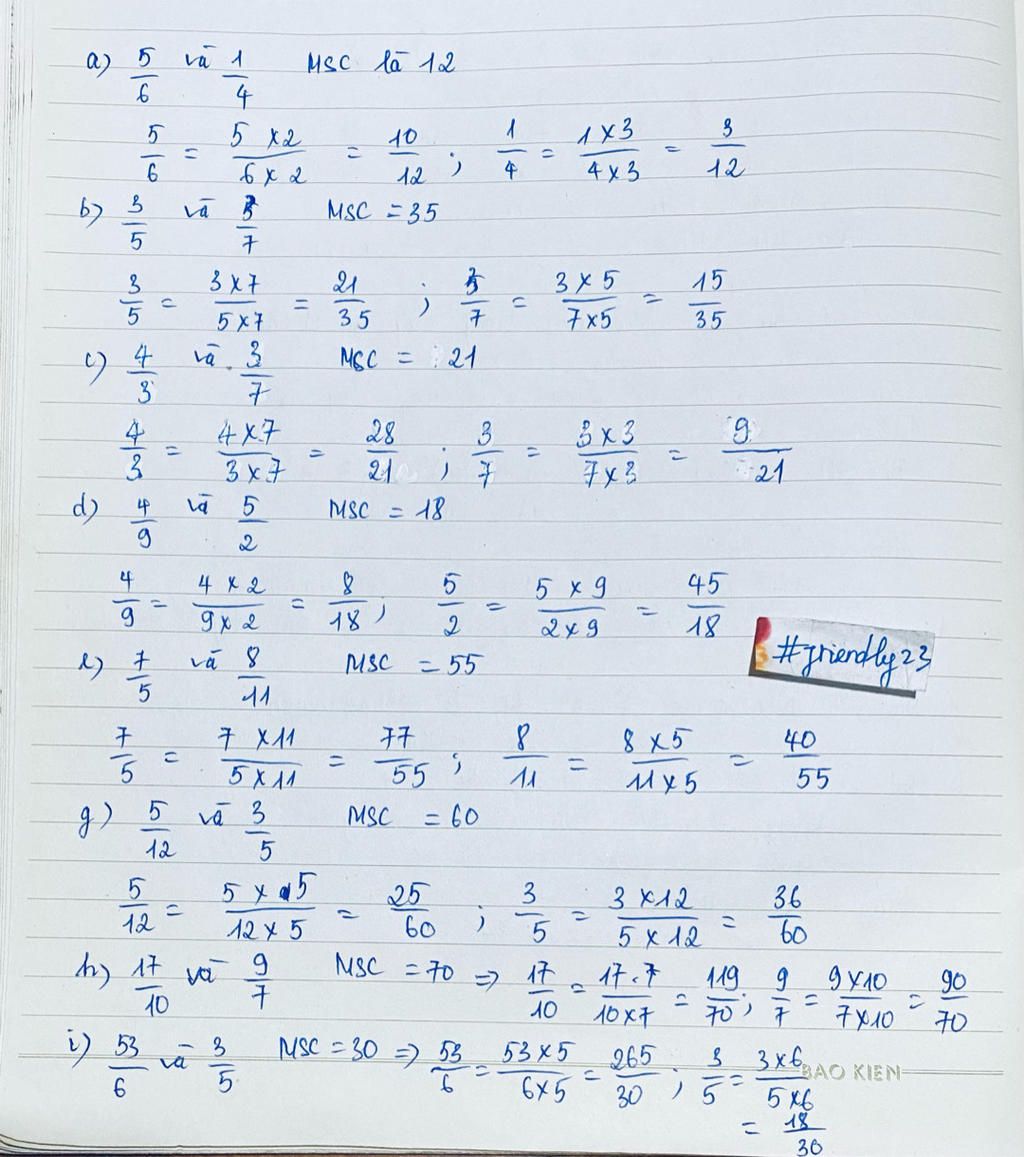 a) 5/6 và 1/4 MSC là 12
5/6 = 5 x 2/6 x 2 = 10/12 ; 1/4 = 1 x 3/4 x 3 = 3/12
b) 3/5 và 3/7 MSC = 35
3/5 = 3 x 7/5 x 7 = 21/35 ; 3/7 = 3 x 5/7 x 5 = 15/35
c) 4/3 và 3/7 MSC = 21
4/3 = 4 x 7/3 x 7 = 28/21 ; 3/7 = 3 x 3/7 x 3 = 9/21
d) 4/9 và 5/2 MSC = 18
4/9 = 4 x 2/9 x 2 = 8/18 ; 5/2 = 5 x 9/2 x 9 = 45/18
#friendly23
e) 7/5 và 8/11 MSC = 55
7/5 = 7 x 11/5 x 11 = 77/55 ; 8/11 = 8 x 5/11 x 5 = 40/55
g) 5/12 và 3/5 MSC = 60
5/12 = 5 x 5/12 x 5 = 25/60 ; 3/5 = 3 x 12/5 x 12 = 36/60
h) 17/10 và 9/7 MSC = 70 => 17/10 = 17 . 7/10 x 7 = 119/70 ; 9/7 = 9 x 10/7 x 10 = 90/70
i) 53/6 và 3/5 MSC = 30 => 53/6 = 53 x 5/6 x 5 = 265/30 ; 3/5 = 3 x 6/5 x 6
= 18/30
BAO KIEN